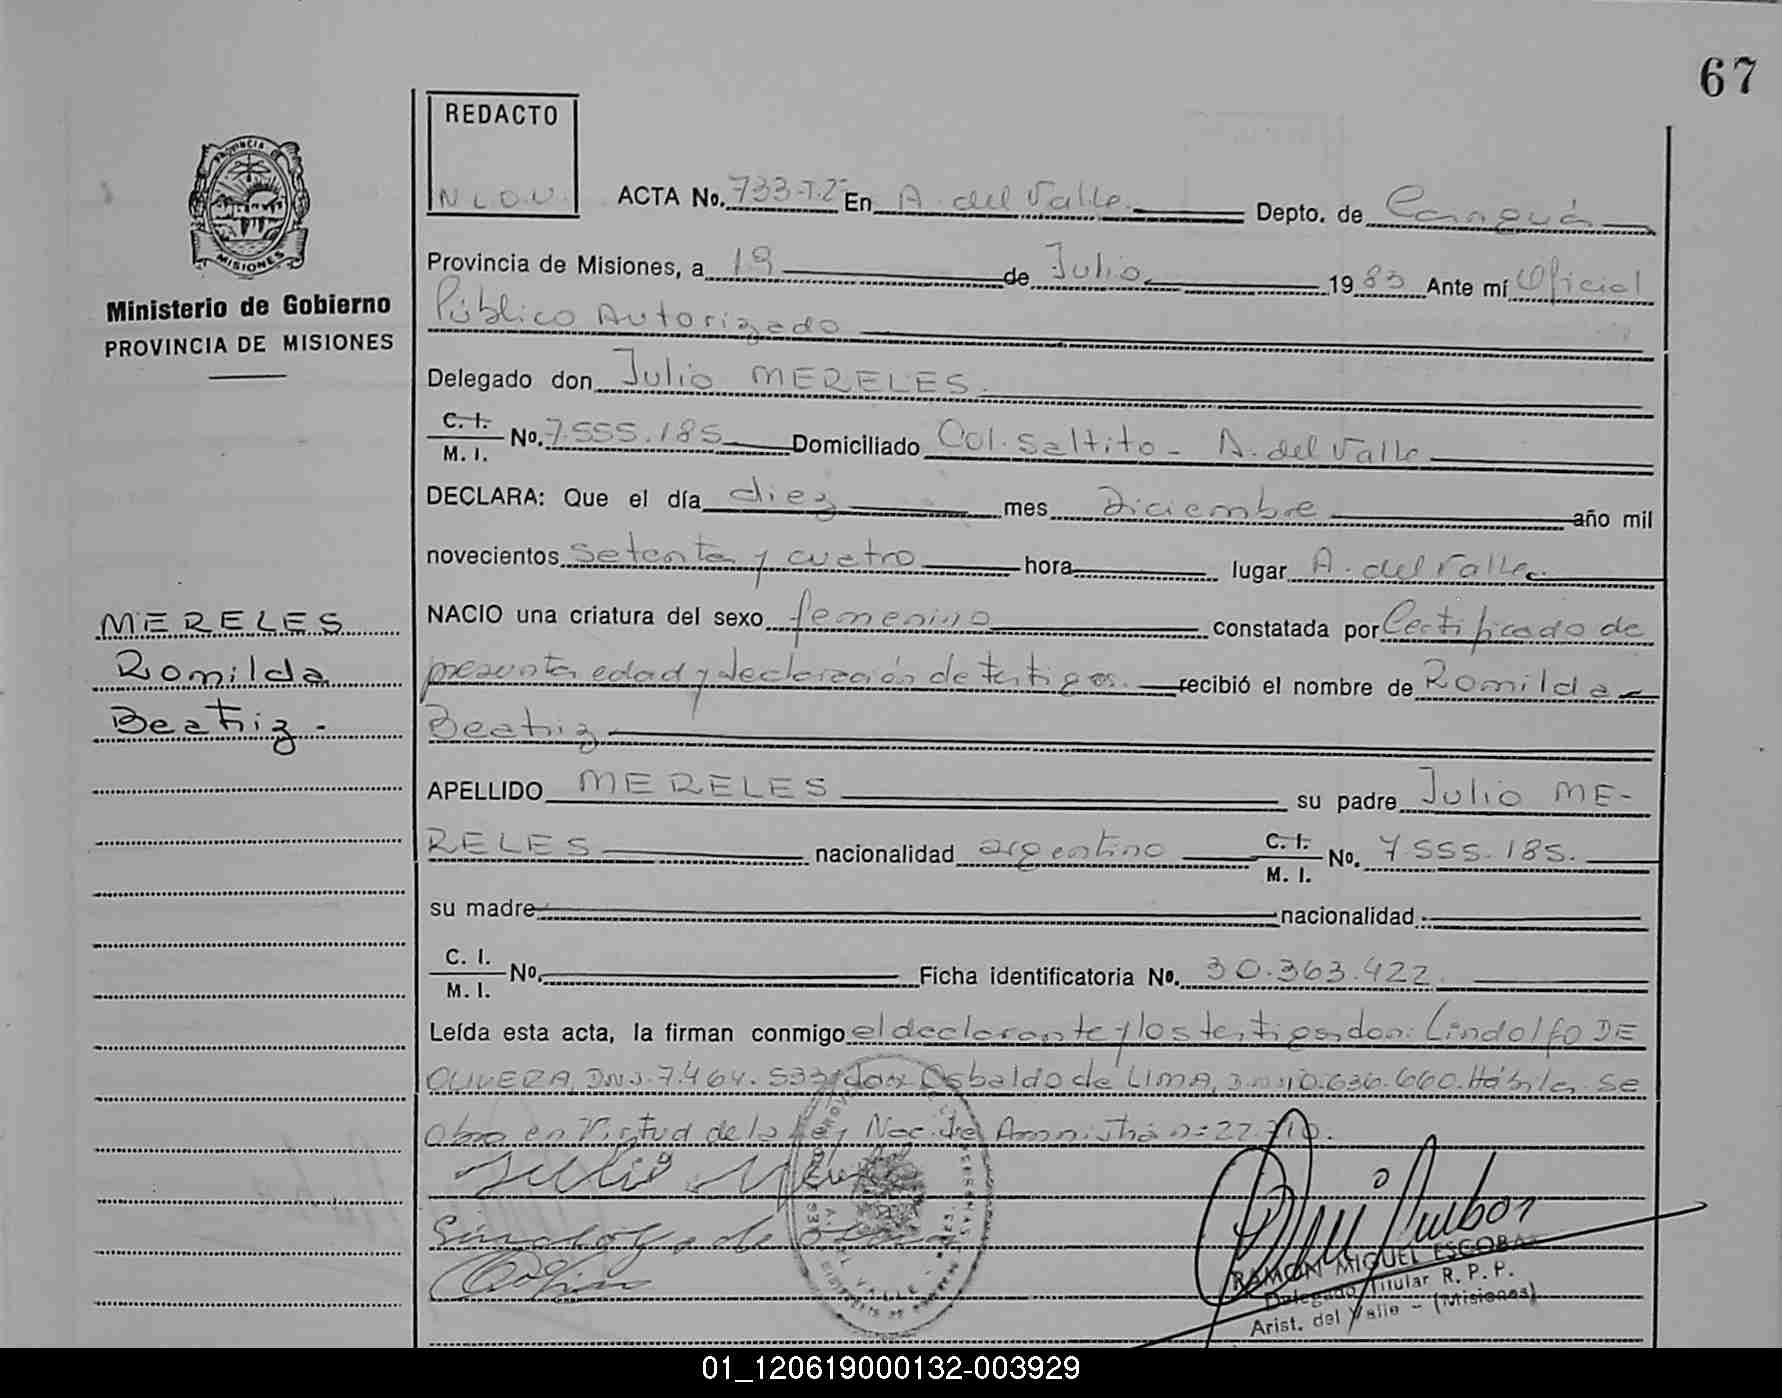 67
REDACTO
N L O.U.
ACTA No. 733-T.2º En A. del Valle. Depto. de Cainguás
PROVINCIA DE
MISIONES
Provincia de Misiones, a 19 de Julio 1983 Ante mí Oficial
Ministerio de Gobierno
Público Autorizado
PROVINCIA DE MISIONES
Delegado don Julio MERELES.
C. I.
M. I. No. 7.555.185 Domiciliado Col. Saltito - A. del Valle
DECLARA: Que el día diez mes Diciembre año mil
novecientos setenta y cuatro hora lugar A. del Valle.
MERELES
NACIO una criatura del sexo femenino constatada por Certificado de
Romilda
presunta edad y declaración de testigos. recibió el nombre de Romilda
Beatriz -
Beatriz
APELLIDO MERELES su padre Julio ME-
RELES nacionalidad argentino C. I.
M. I. No. 7.555.185.
su madre nacionalidad
C. I.
M. I. No. Ficha identificatoria No. 30.363.422
Leída esta acta, la firman conmigo el declarante y los testigos don: Lindolfo DE
OLIVERA, DNI. 7.464.533 y don Osbaldo de LIMA, 10.636.660. Hábiles. Se
obra en Virtud de la Ley Nac. de Amnistía nº 22.710.
Julio
RAMON MIGUEL ESCOBAR
Delegado Titular R. P. P.
Arist. del Valle - (Misiones)
01_120619000132-003929